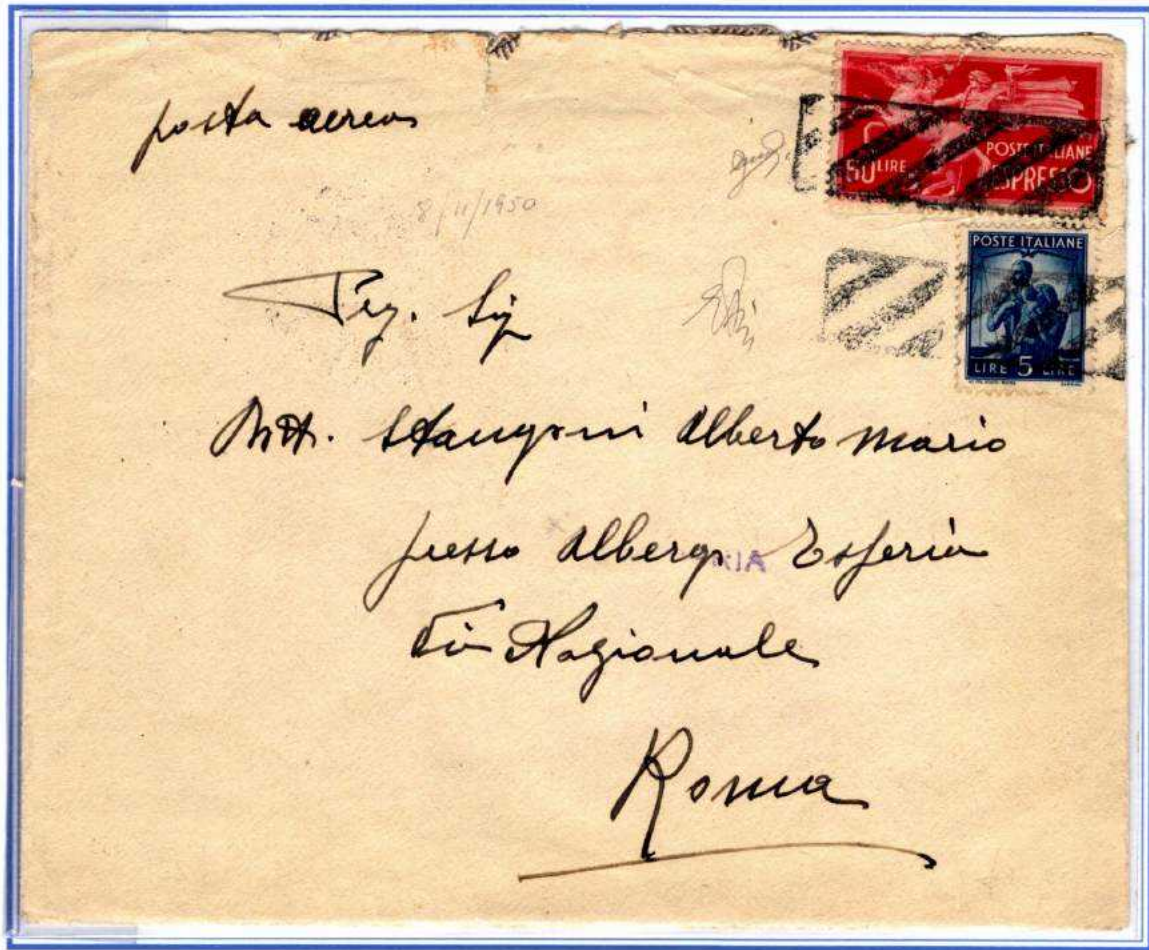 posta aerea
POSTE ITALIANE
50 LIRE ESPRESSO
8/11/1950
POSTE ITALIANE
LIRE 5 LIRE
Preg. Sig
Dott. Stangoni Alberto Mario
presso Albergo Esperia
RIA
Via Nazionale
Roma